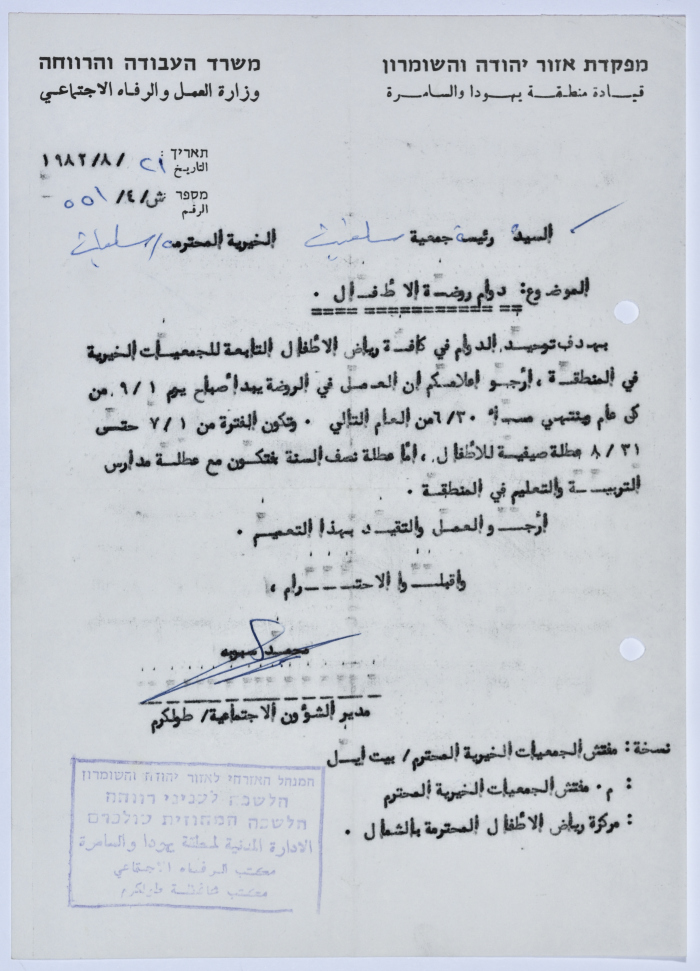 מפקדת אזור יהודה והשומרון
قيادة منطقة يهودا والسامرة
משרד העבודה והרווחה
وزارة العمل والرفاه الاجتماعي
תאריך : ٢١ /٨/ ١٩٨٢
التاريخ
מספר ش/٤/ ٥٥١
الرقم
السيدة رئيسة جمعية سلفيت الخيرية المحترمه/سلفيت
الموضوع: دوام روضة الاطفال .
بهدف توحيد الدوام في كافة رياض الاطفال التابعة للجمعيات الخيرية
في المنطقة ، أرجو اعلامكم ان العمل في الروضة يبدأ صباح يوم ٩/١ من
كل عام وينتهي مساء ٦/٣٠ من العام التالي . وتكون الفترة من ٧/١ حتى
٨/٣١ عطلة صيفية للاطفال ، أما عطلة نصف السنة فتكون مع عطلة مدارس
التربية والتعليم في المنطقة .
أرجو العمل والتقيد بهذا التعميم .
واقبلوا الاحترام ،
محمد
مدير الشؤون الاجتماعية/ طولكرم
نسخة: مفتش الجمعيات الخيرية المحترم/ بيت ايل
: م. مفتش الجمعيات الخيرية المحترم
: مركزة رياض الاطفال المحترمة بالشمال .
המנהל האזרחי לאזור יהודה והשומרון
הלשכה לעניני רווחה
הלשכה המחוזית טולכרם
الادارة المدنية لمنطقة يهودا والسامرة
مكتب الرفاه الاجتماعي
مكتب محافظة طولكرم